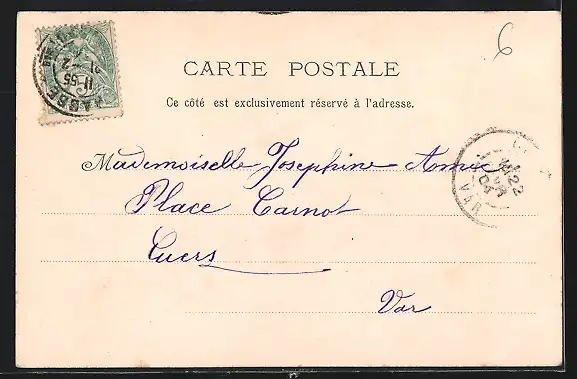 6
CARTE POSTALE
Ce côté est exclusivement réservé à l'adresse.
Mademoiselle Josephine Amic
Place Carnot
Cuers
Var
11-55
22
04
VAR